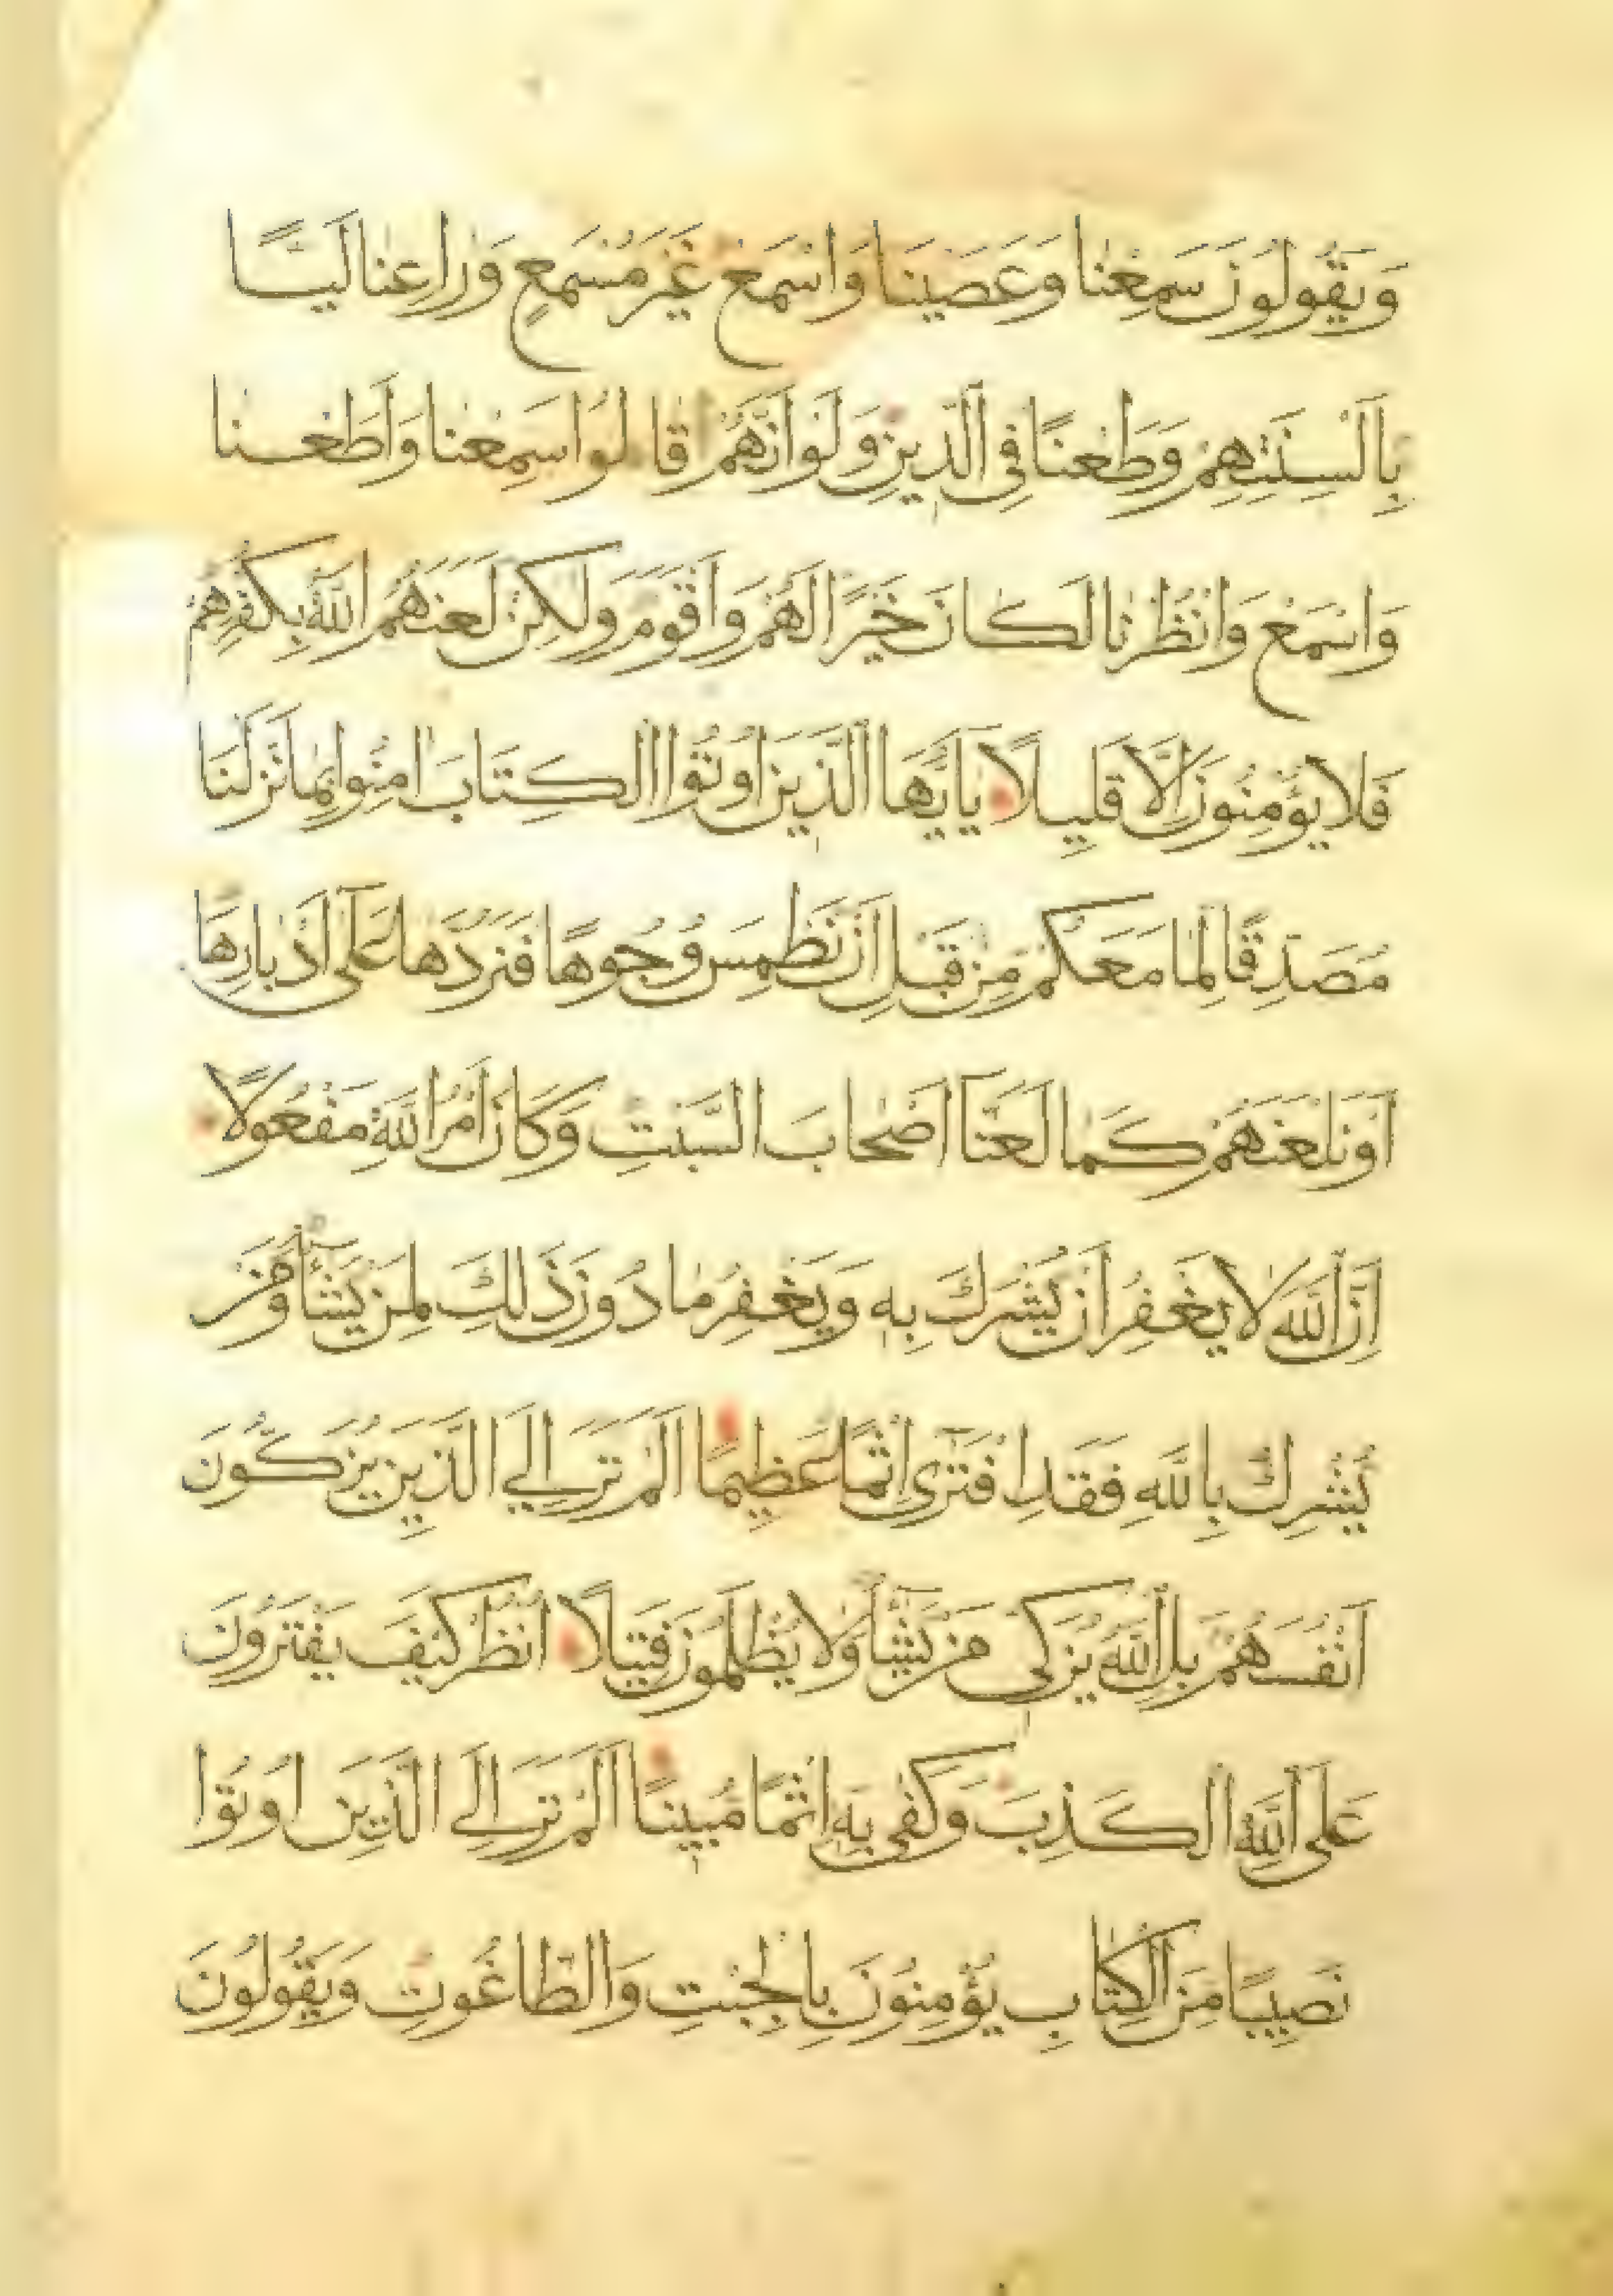 وَيَقُولُونَ سَمِعْنَا وَعَصَيْنَا وَاسْمَعْ غَيْرَ مُسْمَعٍ وَرَاعِنَا لَيًّا
بِأَلْسِنَتِهِمْ وَطَعْنًا فِي الدِّينِ وَلَوْ أَنَّهُمْ قَالُوا سَمِعْنَا وَأَطَعْنَا
وَاسْمَعْ وَانْظُرْنَا لَكَانَ خَيْرًا لَهُمْ وَأَقْوَمَ وَلَكِنْ لَعَنَهُمُ اللَّهُ بِكُفْرِهِمْ
فَلَا يُؤْمِنُونَ إِلَّا قَلِيلًا يَا أَيُّهَا الَّذِينَ أُوتُوا الْكِتَابَ آمِنُوا بِمَا نَزَّلْنَا
مُصَدِّقًا لِمَا مَعَكُمْ مِنْ قَبْلِ أَنْ نَطْمِسَ وُجُوهًا فَنَرُدَّهَا عَلَى أَدْبَارِهَا
أَوْ نَلْعَنَهُمْ كَمَا لَعَنَّا أَصْحَابَ السَّبْتِ وَكَانَ أَمْرُ اللَّهِ مَفْعُولًا
إِنَّ اللَّهَ لَا يَغْفِرُ أَنْ يُشْرَكَ بِهِ وَيَغْفِرُ مَا دُونَ ذَلِكَ لِمَنْ يَشَاءُ وَمَنْ
يُشْرِكْ بِاللَّهِ فَقَدِ افْتَرَى إِثْمًا عَظِيمًا أَلَمْ تَرَ إِلَى الَّذِينَ يُزَكُّونَ
أَنْفُسَهُمْ بَلِ اللَّهُ يُزَكِّي مَنْ يَشَاءُ وَلَا يُظْلَمُونَ فَتِيلًا انْظُرْ كَيْفَ يَفْتَرُونَ
عَلَى اللَّهِ الْكَذِبَ وَكَفَى بِهِ إِثْمًا مُبِينًا أَلَمْ تَرَ إِلَى الَّذِينَ أُوتُوا
نَصِيبًا مِنَ الْكِتَابِ يُؤْمِنُونَ بِالْجِبْتِ وَالطَّاغُوتِ وَيَقُولُونَ